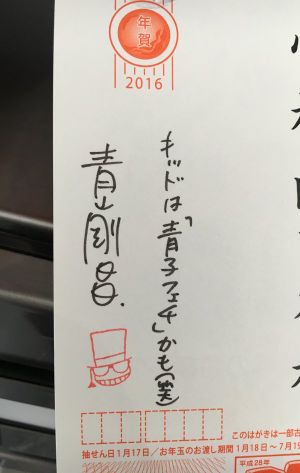 年賀
2016
キッドは「青子フェチ」かも(笑)
青山剛昌.
このはがきは一部古
抽せん日1月17日/お年玉のお渡し期間1月18日~7月19
平成28年